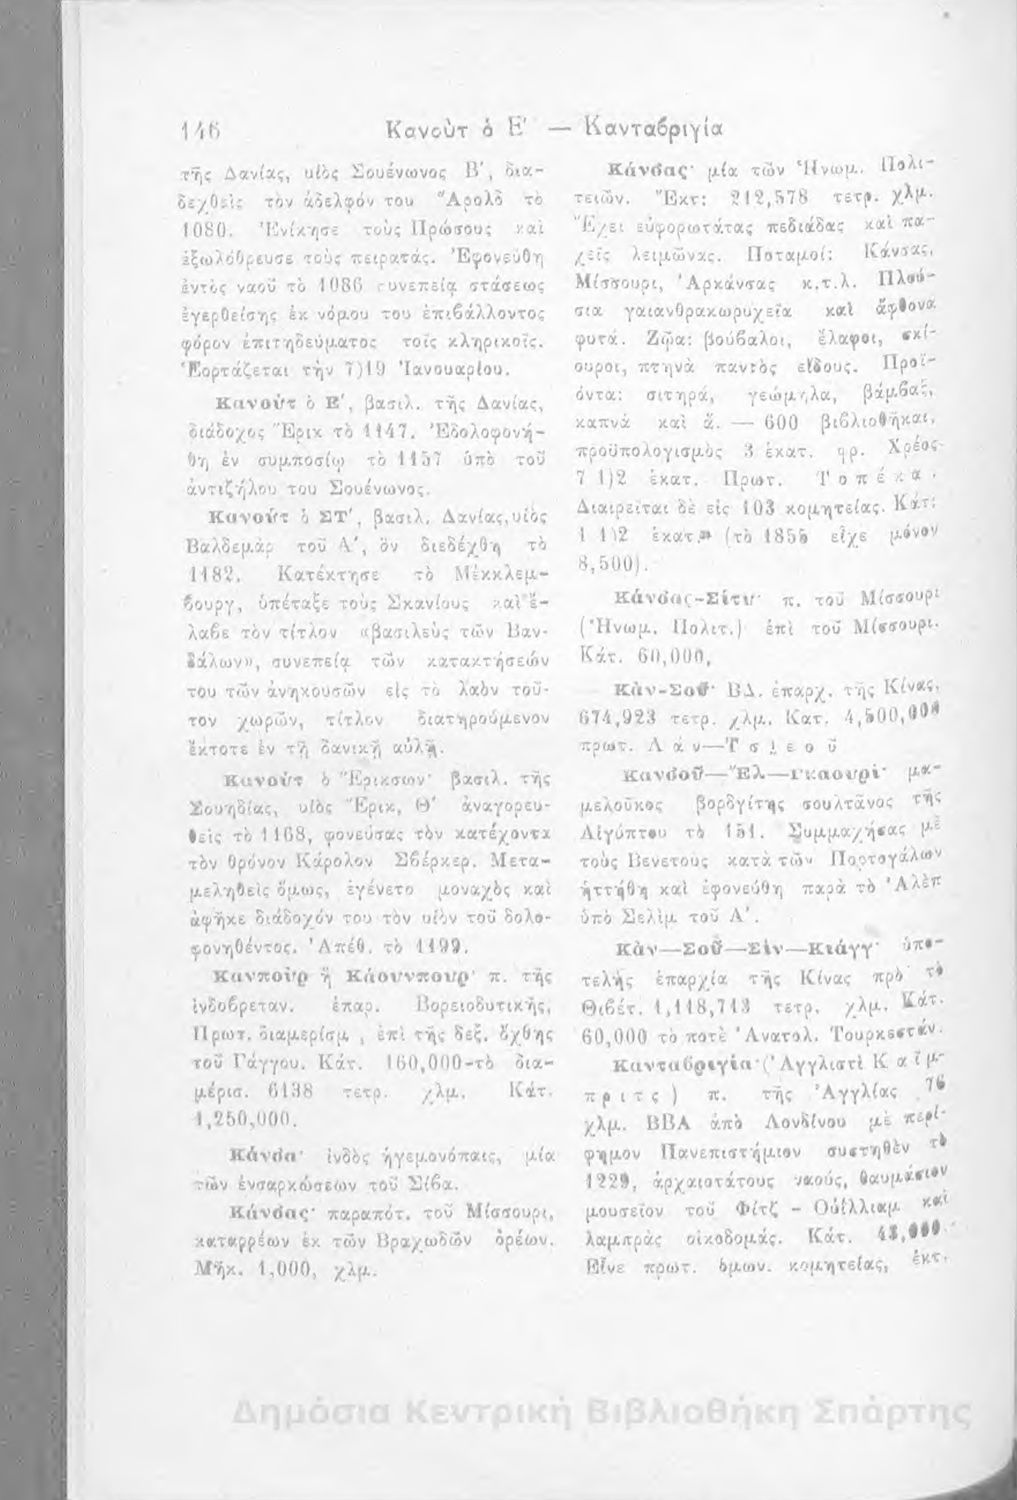 146
Κανοὺτ ὁ Ε' — Κανταβριγία
τῆς Δανίας, υἱὸς Σουένωνος Β', δια-
δεχθεὶς τὸν ἀδελφόν του Ἅρολδ τὸ
1080. Ἐνίκησε τοὺς Πρώσους καὶ
ἐξωλόθρευσε τοὺς πειρατάς. Ἐφονεύθη
ἐντὸς ναοῦ τὸ 1086 συνεπείᾳ στάσεως
ἐγερθείσης ἐκ νόμου του ἐπιβάλλοντος
φόρον ἐπιτηδεύματος τοῖς κληρικοῖς.
Ἑορτάζεται τὴν 7)19 Ἰανουαρίου.
Κανοὺτ ὁ Ε', βασιλ. τῆς Δανίας,
διάδοχος Ἔρικ τὸ 1147. Ἐδολοφονή-
θη ἐν συμποσίῳ τὸ 1157 ὑπὸ τοῦ
ἀντιζήλου του Σουένωνος.
Κανοὺτ ὁ ΣΤ', βασιλ. Δανίας, υἱὸς
Βαλδεμὰρ τοῦ Α', ὃν διεδέχθη τὸ
1182. Κατέκτησε τὸ Μέκκλεμ-
βουργ, ὑπέταξε τοὺς Σκανίους καὶ ἔ-
λαβε τὸν τίτλον «βασιλεὺς τῶν Βαν-
δάλων», συνεπείᾳ τῶν κατακτήσεών
του τῶν ἀνηκουσῶν εἰς τὸ λαὸν τοῦ-
τον χωρῶν, τίτλον διατηρούμενον
ἔκτοτε ἐν τῇ δανικῇ αὐλῇ.
Κανοὺτ ὁ Ἔρικσων· βασιλ. τῆς
Σουηδίας, υἱὸς Ἔρικ, Θ' ἀναγορευ-
θεὶς τὸ 1168, φονεύσας τὸν κατέχοντα
τὸν θρόνον Κάρολον Σβέρκερ. Μετα-
μεληθεὶς ὅμως, ἐγένετο μοναχὸς καὶ
ἀφῆκε διάδοχόν του τὸν υἱὸν τοῦ δολο-
φονηθέντος. Ἀπέθ. τὸ 1199.
Κανποὺρ ἢ Κάουνπουρ· π. τῆς
ἰνδοβρεταν. ἐπαρ. Βορειοδυτικῆς,
Πρωτ. διαμερίσμ., ἐπὶ τῆς δεξ. ὄχθης
τοῦ Γάγγου. Κάτ. 160,000-τὸ δια-
μέρισ. 6138 τετρ. χλμ. Κάτ.
1,250,000.
Κάνδα· ἰνδὸς ἡγεμονόπαις, μία
τῶν ἐνσαρκώσεων τοῦ Σίβα.
Κάνσας· παραπότ. τοῦ Μίσσουρι,
καταρρέων ἐκ τῶν Βραχωδῶν ὀρέων.
Μῆκ. 1,000, χλμ.
Κάνσας· μία τῶν Ἡνωμ. Πολι-
τειῶν. Ἔκτ: 212,578 τετρ. χλμ.
Ἔχει εὐφορωτάτας πεδιάδας καὶ πα-
χεῖς λειμῶνας. Ποταμοί: Κάνσας,
Μίσσουρι, Ἀρκάνσας κ.τ.λ. Πλού-
σια γαιανθρακωρυχεῖα καὶ ἄφθονα
φυτά. Ζῷα: βούβαλοι, ἔλαφοι, σκί-
ουροι, πτηνὰ παντὸς εἴδους. Προϊ-
όντα: σιτηρά, γεώμηλα, βάμβαξ,
καπνὰ καὶ ἄ. — 600 βιβλιοθῆκαι,
προϋπολογισμὸς 3 ἑκατ. φρ. Χρέος
7 1)2 ἑκατ. Πρωτ. Τοπέκα.
Διαιρεῖται δὲ εἰς 103 κομητείας. Κάτ:
1 1)2 ἑκατ. (τὸ 1855 εἶχε μόνον
8,500).
Κάνσας-Σίτυ· π. τοῦ Μίσσουρι
(Ἡνωμ. Πολιτ.) ἐπὶ τοῦ Μίσσουρι.
Κάτ. 60,000,
Κὰν-Σοῦ· ΒΔ. ἐπαρχ. τῆς Κίνας,
674,923 τετρ. χλμ. Κατ. 4,500,000
πρωτ. Λάν—Τσέοῦ
Κανσοῦ—Ἒλ—Γκαουρὶ· μα-
μελοῦκος βορδγίτης σουλτᾶνος τῆς
Αἰγύπτου τὸ 151. Συμμαχήσας μὲ
τοὺς Βενετοὺς κατὰ τῶν Πορτογάλων
ἡττήθη καὶ ἐφονεύθη παρὰ τὸ Ἀλὲπ
ὑπὸ Σελὶμ τοῦ Α'.
Κὰν—Σοῦ—Σὶν—Κιάγγ· ὑπο-
τελὴς ἐπαρχία τῆς Κίνας πρὸ τὸ
Θιβέτ. 1,118,713 τετρ. χλμ. Κάτ.
60,000 τὸ ποτὲ Ἀνατολ. Τουρκεστάν.
Κανταβριγία· (Ἀγγλιστὶ Καῖμ-
πριτς) π. τῆς Ἀγγλίας 76
χλμ. ΒΒΑ ἀπὸ Λονδίνου μὲ περί-
φημον Πανεπιστήμιον συστηθὲν τὸ
1229, ἀρχαιοτάτους ναούς, θαυμάσιον
μουσεῖον τοῦ Φίτζ - Οὐίλλιαμ καὶ
λαμπρὰς οἰκοδομάς. Κάτ.
Εἶνε πρωτ. ὁμων. κομητείας, ἐκτ.
Δημόσια Κεντρική Βιβλιοθήκη Σπάρτης